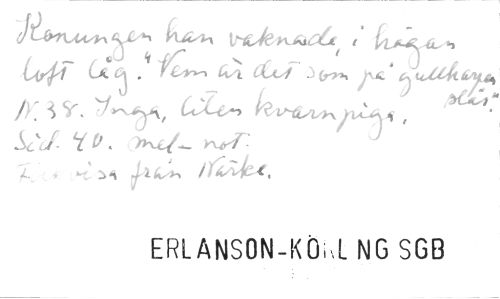 Konungen han vaknade, i högan
loft låg." Vem är det som på gullharpan
slås."
N. 38. Inga, liten kvarnpiga.
Sid. 40. mel-not.
visa från Närke.
ERLANSON-KÖ NG SGB